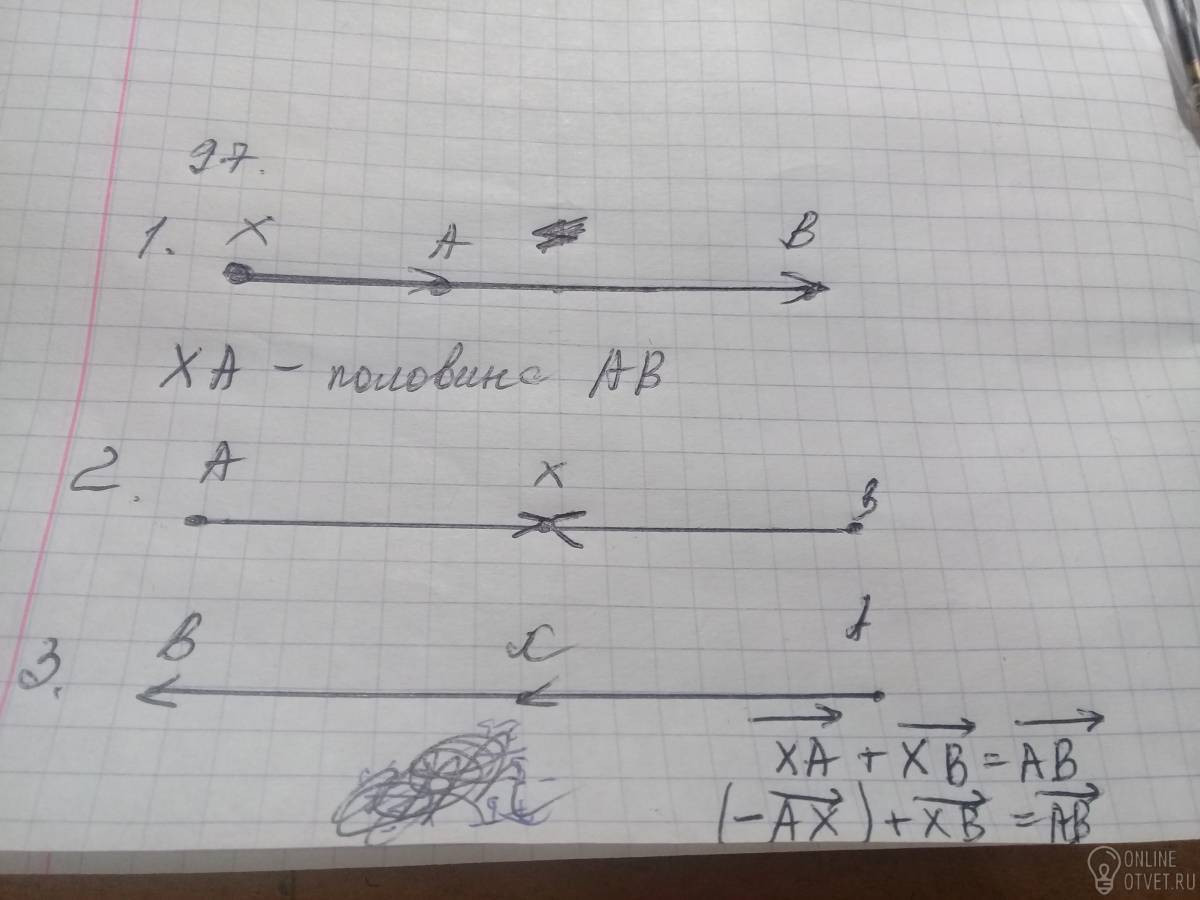 97.
1. X A B
XA - половина AB
2. A X B
3. B X A
XA + XB = AB
(-AX) + XB = AB
ONLINE
OTVET.RU